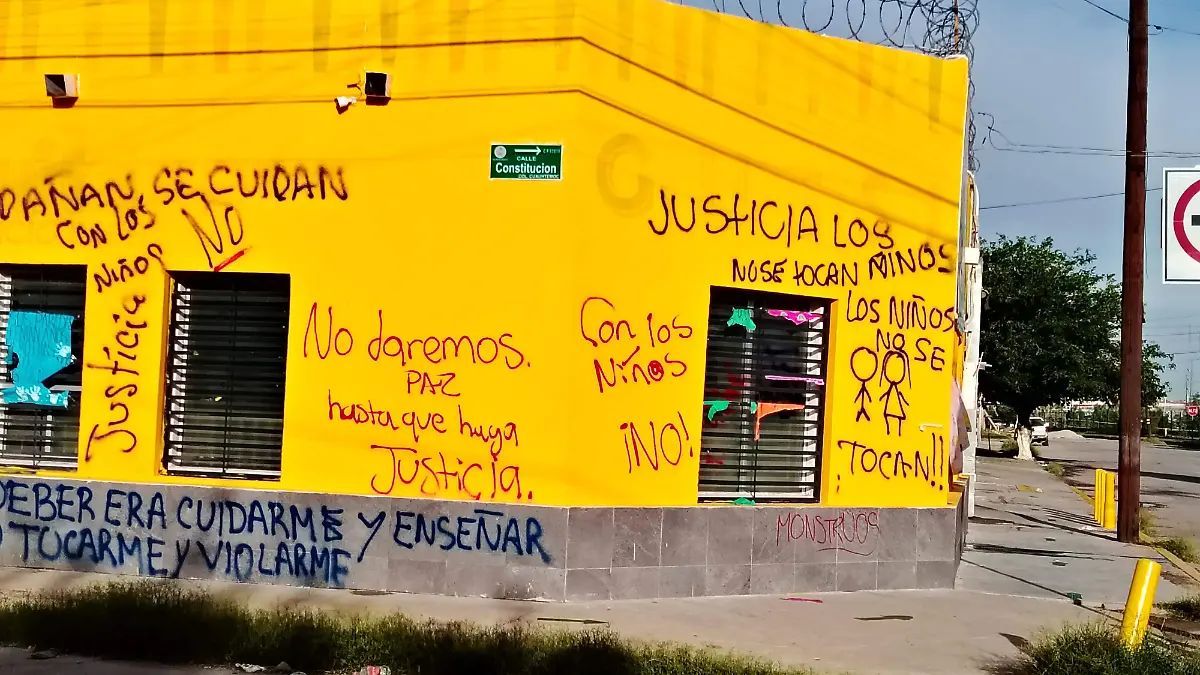 DAÑAN SE CUIDAN
CON LOS NO
NIÑOS
Justicia
CALLE
Constitucion
COL. CUAUHTEMOC
No daremos.
PAZ
hasta que haya
Justicia.
Con los
Niños
¡NO!
JUSTICIA LOS
NO SE TOCAN NIÑOS
LOS NIÑOS
NO SE
TOCAN!!
DEBER ERA CUIDARME Y ENSEÑAR
TOCARME Y VIOLARME
MONSTRUOS